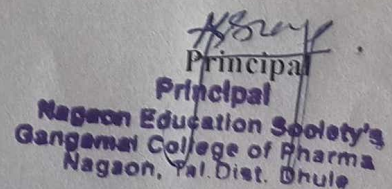 Principal
Principal
Nagaon Education Society's
Gangamai College of Pharma
Nagaon, Tal. Dist. Dhule